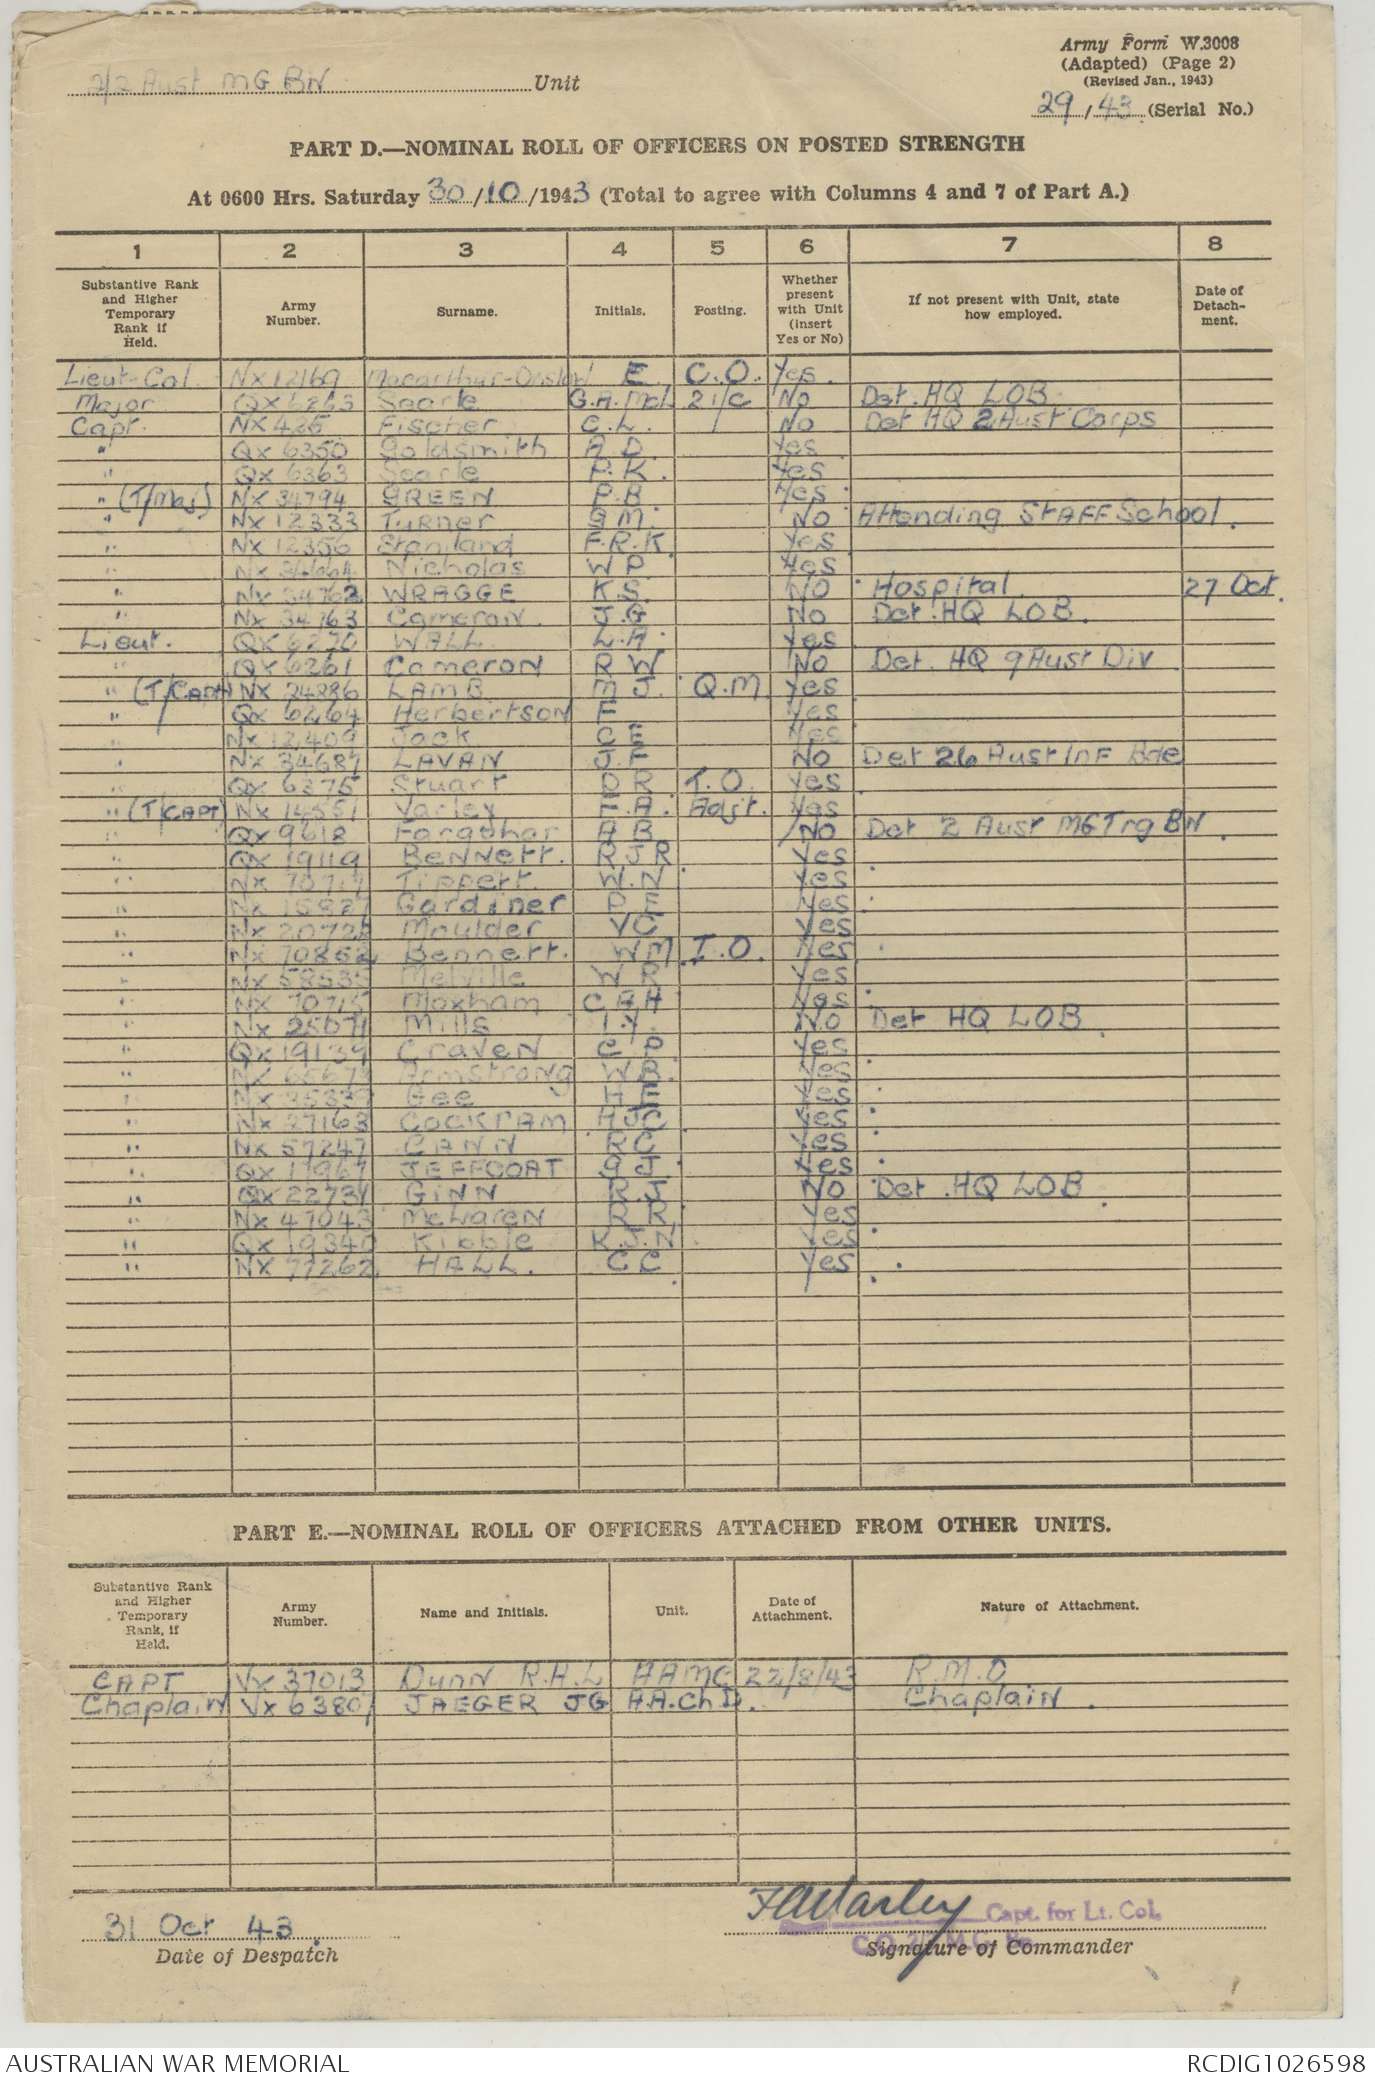 Army Form W.3008
(Adapted) (Page 2)
(Revised Jan., 1943)
2/2 Aust MG BN Unit
29/43 (Serial No.)
PART D.—NOMINAL ROLL OF OFFICERS ON POSTED STRENGTH
At 0600 Hrs. Saturday 30/10/1943 (Total to agree with Columns 4 and 7 of Part A.)
1 2 3 4 5 6 7 8
Substantive Rank and Higher Temporary Rank if Held. Army Number. Surname. Initials. Posting. Whether present with Unit (insert Yes or No) If not present with Unit, state how employed. Date of Detachment.
Lieut-Col. NX12169 Macarthur-Onslow E C.O. Yes.
Major QX6263 Searle G.A.McI. 2i/c No Det. HQ LOB
Capt. NX425 Fischer C.L. No Det HQ 2 Aust Corps
" QX6350 Goldsmith A D. Yes
" QX6363 Searle P.K. Yes
" (T/Maj) NX34794 GREEN P.B Yes
" NX12333 TURNER G M. No Attending STAFF School.
" NX12350 Staniland F.R.K. Yes
" Nicholas W P Yes
" NX34762 WRAGGE K.S. NO Hospital 27 Oct.
" NX34763 Cameron J.G No Det. HQ LOB.
Lieut. QX6270 WALL L.A. Yes
" QX6261 Cameron R W No Det. HQ 9 Aust Div
" (T/CAPT) NX24286 LAMB M J. Q.M. Yes
" QX6264 Herbertson F Yes
" NX12409 Jack C E Yes
" NX34687 LAVAN J.F No Det 26 Aust Inf Bde
" QX6375 Stuart D R T.O. Yes
" (T/CAPT) NX14551 Varley F.A. Adjt. Yes
" QX9618 Farquhar A B No Det 2 Aust MG Trg BN.
" QX19119 Bennett. R J R Yes
" Tippett. W.N Yes
" Gardiner P E Yes
" Moulder V C Yes
" NX70852 Bennett. W M I.O. Yes
" NX58535 Melville W R Yes
" NX70715 Moxham C B H Yes
" NX25071 Mills I.Y. No Det HQ LOB
" QX19139 Craven C P Yes
" Armstrong W B. Yes
" Gee H E Yes
" NX27163 Cockram H J C Yes
" NX57247 CANN R C Yes
" QX17967 JEFFCOAT G J. Yes
" QX22731 GINN R.J No Det. HQ LOB
" NX47043 McLaren R R Yes
" QX19340 Kibble K.J.N Yes
" NX77262 HALL. C C Yes
PART E.—NOMINAL ROLL OF OFFICERS ATTACHED FROM OTHER UNITS.
Substantive Rank and Higher Temporary Rank, if Held. Army Number. Name and Initials. Unit. Date of Attachment. Nature of Attachment.
CAPT VX37013 Dunn R.H.L AAMC 22/8/43 R.M.O
Chaplain VX63801 JAEGER JG A.A.Ch.D. Chaplain.
31 Oct 43. FAVarley Capt. for Lt. Col.
Date of Despatch Signature of Commander
AUSTRALIAN WAR MEMORIAL RCDIG1026598